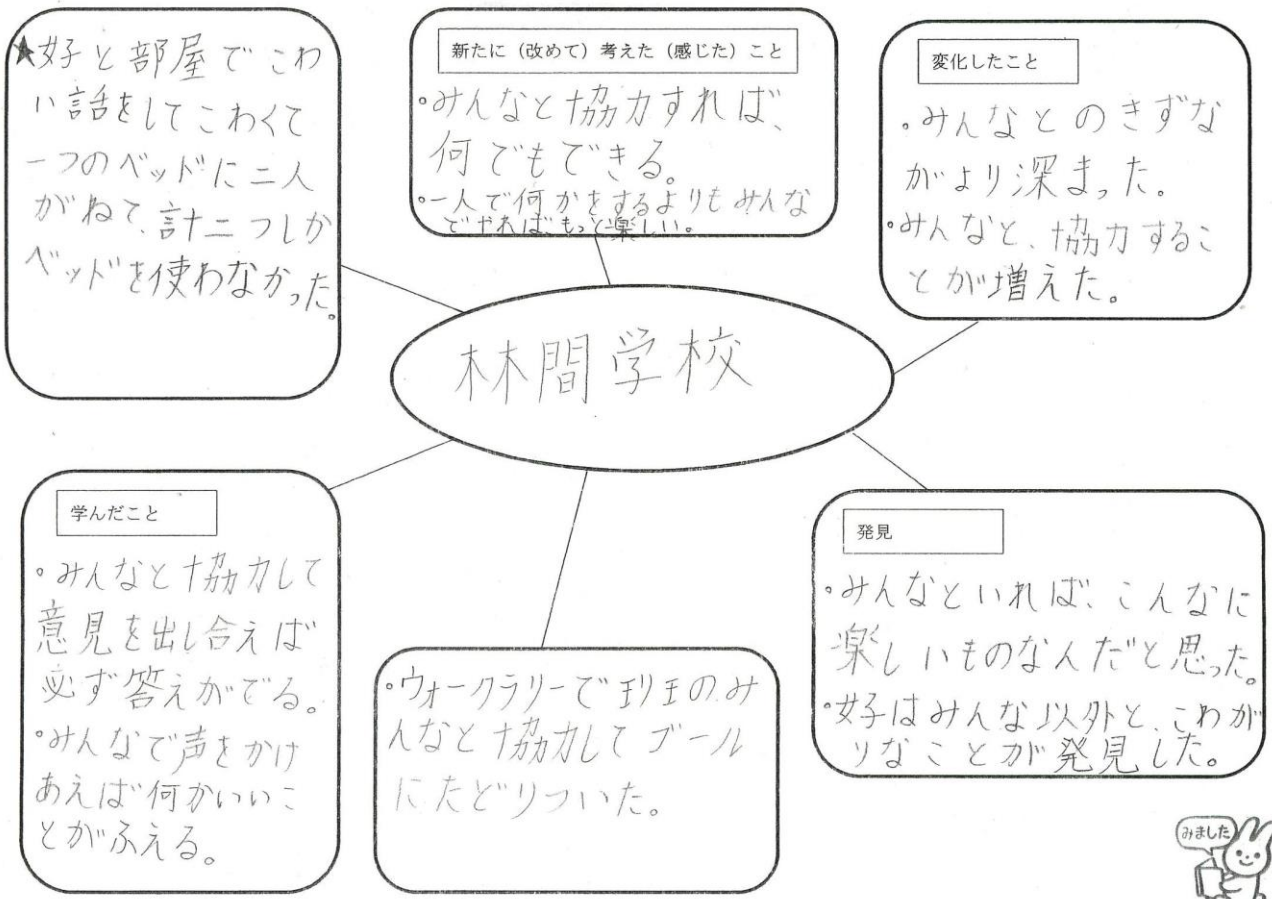 ★好と部屋でこわ
い話をしてこわくて
一つのベッドに二人
がねて、計二つしか
ベッドを使わなかった。
新たに（改めて）考えた（感じた）こと
・みんなと協力すれば、
何でもできる。
・一人で何かをするよりもみんな
でやれば、もっと楽しい。
変化したこと
・みんなとのきずな
がより深まった。
・みんなと、協力するこ
とが増えた。
林間学校
学んだこと
・みんなと協力して
意見を出し合えば
必ず答えがでる。
・みんなで声をかけ
あえば何かいいこ
とがふえる。
・ウォークラリーで班のみ
んなと協力してゴール
にたどりついた。
発見
・みんなといれば、こんなに
楽しいものなんだと思った。
・好はみんな以外と、こわが
りなことが発見した。
みました